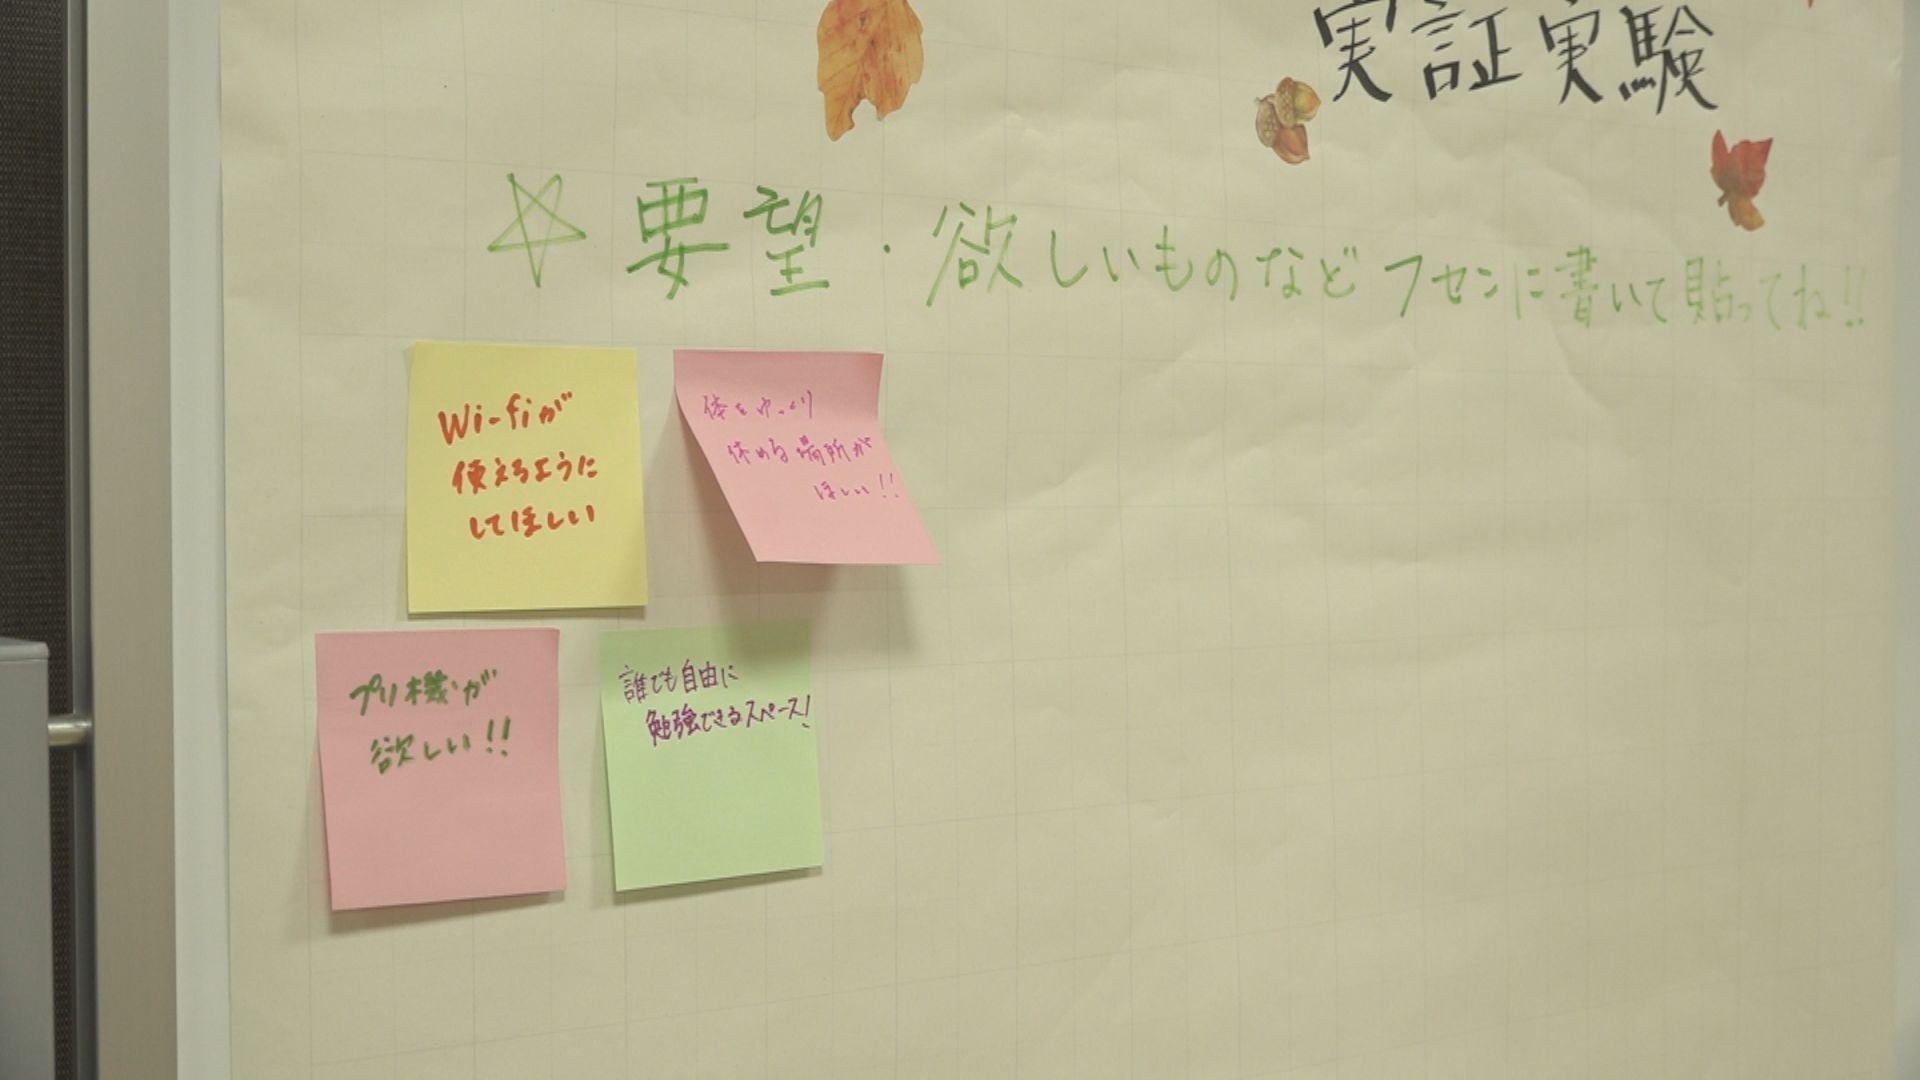 実証実験
☆要望・欲しいものなど フセンに書いて貼ってね!!
Wi-fiが
使えるように
してほしい
体をゆっくり
休める場所が
ほしい!!
プリ機が
欲しい!!
誰でも自由に
勉強できるスペース!